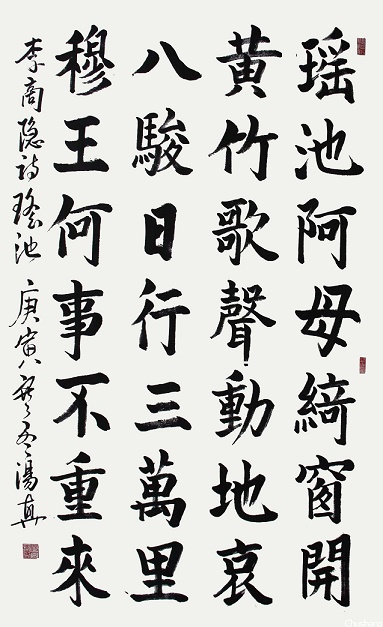 瑶池阿母綺窗開
黃竹歌聲動地哀
八駿日行三萬里
穆王何事不重來
李商隐詩瑤池 庚寅